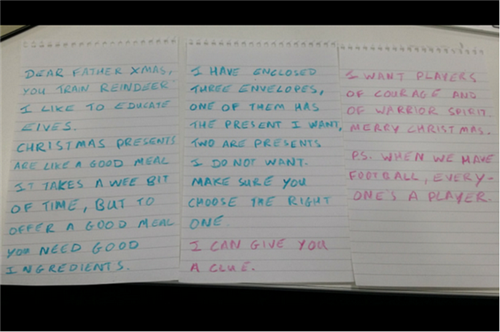 DEAR FATHER XMAS,
YOU TRAIN REINDEER
I LIKE TO EDUCATE
ELVES.
CHRISTMAS PRESENTS
ARE LIKE A GOOD MEAL
IT TAKES A WEE BIT
OF TIME, BUT TO
OFFER A GOOD MEAL
YOU NEED GOOD
INGREDIENTS.
I HAVE ENCLOSED
THREE ENVELOPES,
ONE OF THEM HAS
THE PRESENT I WANT,
TWO ARE PRESENTS
I DO NOT WANT.
MAKE SURE YOU
CHOOSE THE RIGHT
ONE.
I CAN GIVE YOU
A CLUE.
I WANT PLAYERS
OF COURAGE AND
OF WARRIOR SPIRIT.
MERRY CHRISTMAS.
PS. WHEN WE HAVE
FOOTBALL, EVERY-
ONE'S A PLAYER.